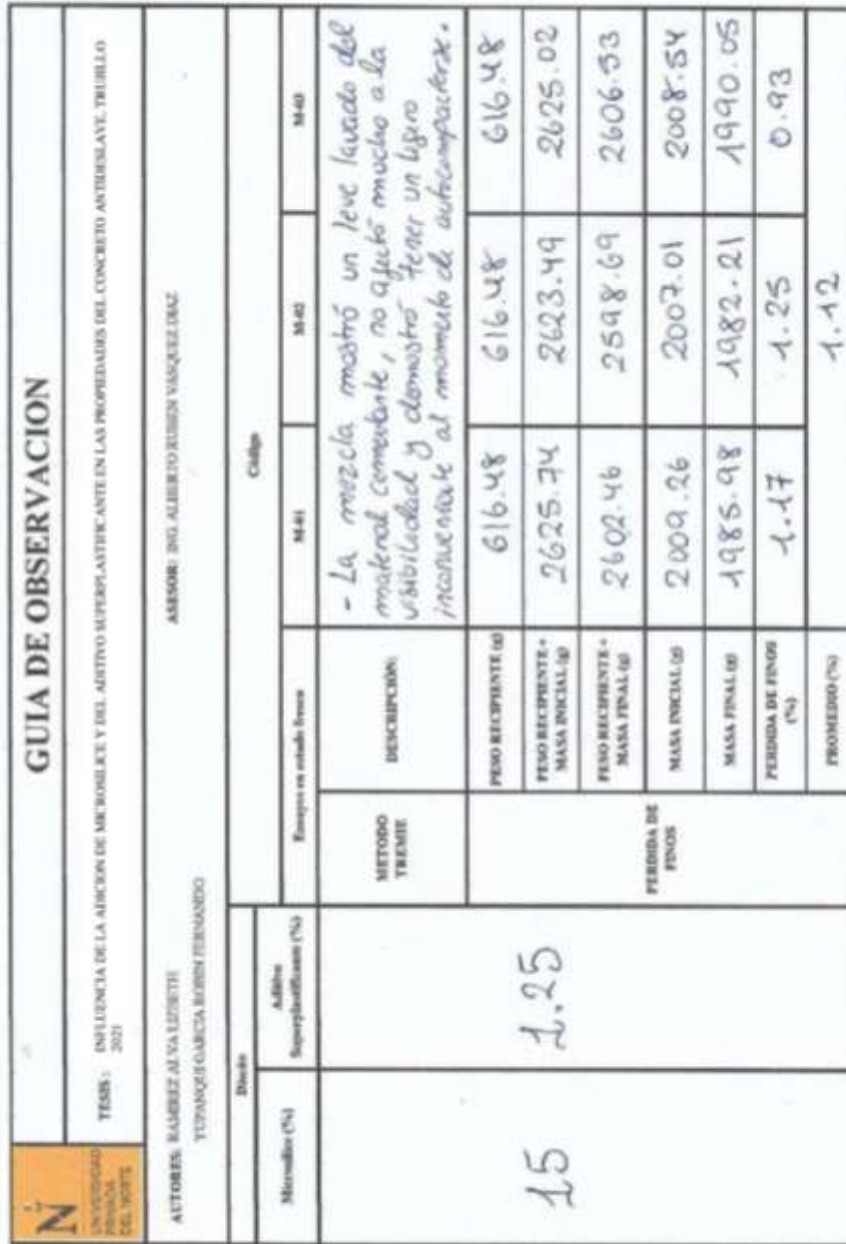 GUIA DE OBSERVACION
N
UNIVERSIDAD
PRIVADA
DEL NORTE
TESIS : INFLUENCIA DE LA ADICION DE MICROSILICE Y DEL ADITIVO SUPERPLASTIFICANTE EN LAS PROPIEDADES DEL CONCRETO ANTIDESLAVE, TRUJILLO
2021
AUTORES: RAMIREZ ALVA LIZSETH
YUPANQUI GARCIA ROBIN FERNANDO
ASESOR: ING. ALBERTO RUBEN VASQUEZ DIAZ
Diseño
Código
Microsilice (%)
Aditivo
Superplastificante (%)
Ensayos en estado fresco
M-01
M-02
M-03
15
1.25
METODO
TREMIE
DESCRIPCIÓN:
- La mezcla mostró un leve lavado del
material cementante, no afectó mucho a la
visibilidad y demostró tener un ligero
inconveniente al momento de autocompactarse.
PERDIDA DE
FINOS
PESO RECIPIENTE (g) 616.48 616.48 616.48
PESO RECIPIENTE +
MASA INICIAL (g) 2625.74 2623.49 2625.02
PESO RECIPIENTE +
MASA FINAL (g) 2602.46 2598.69 2606.53
MASA INICIAL (g) 2009.26 2007.01 2008.54
MASA FINAL (g) 1985.98 1982.21 1990.05
PERDIDA DE FINOS
(%) 1.17 1.25 0.93
PROMEDIO (%) 1.12